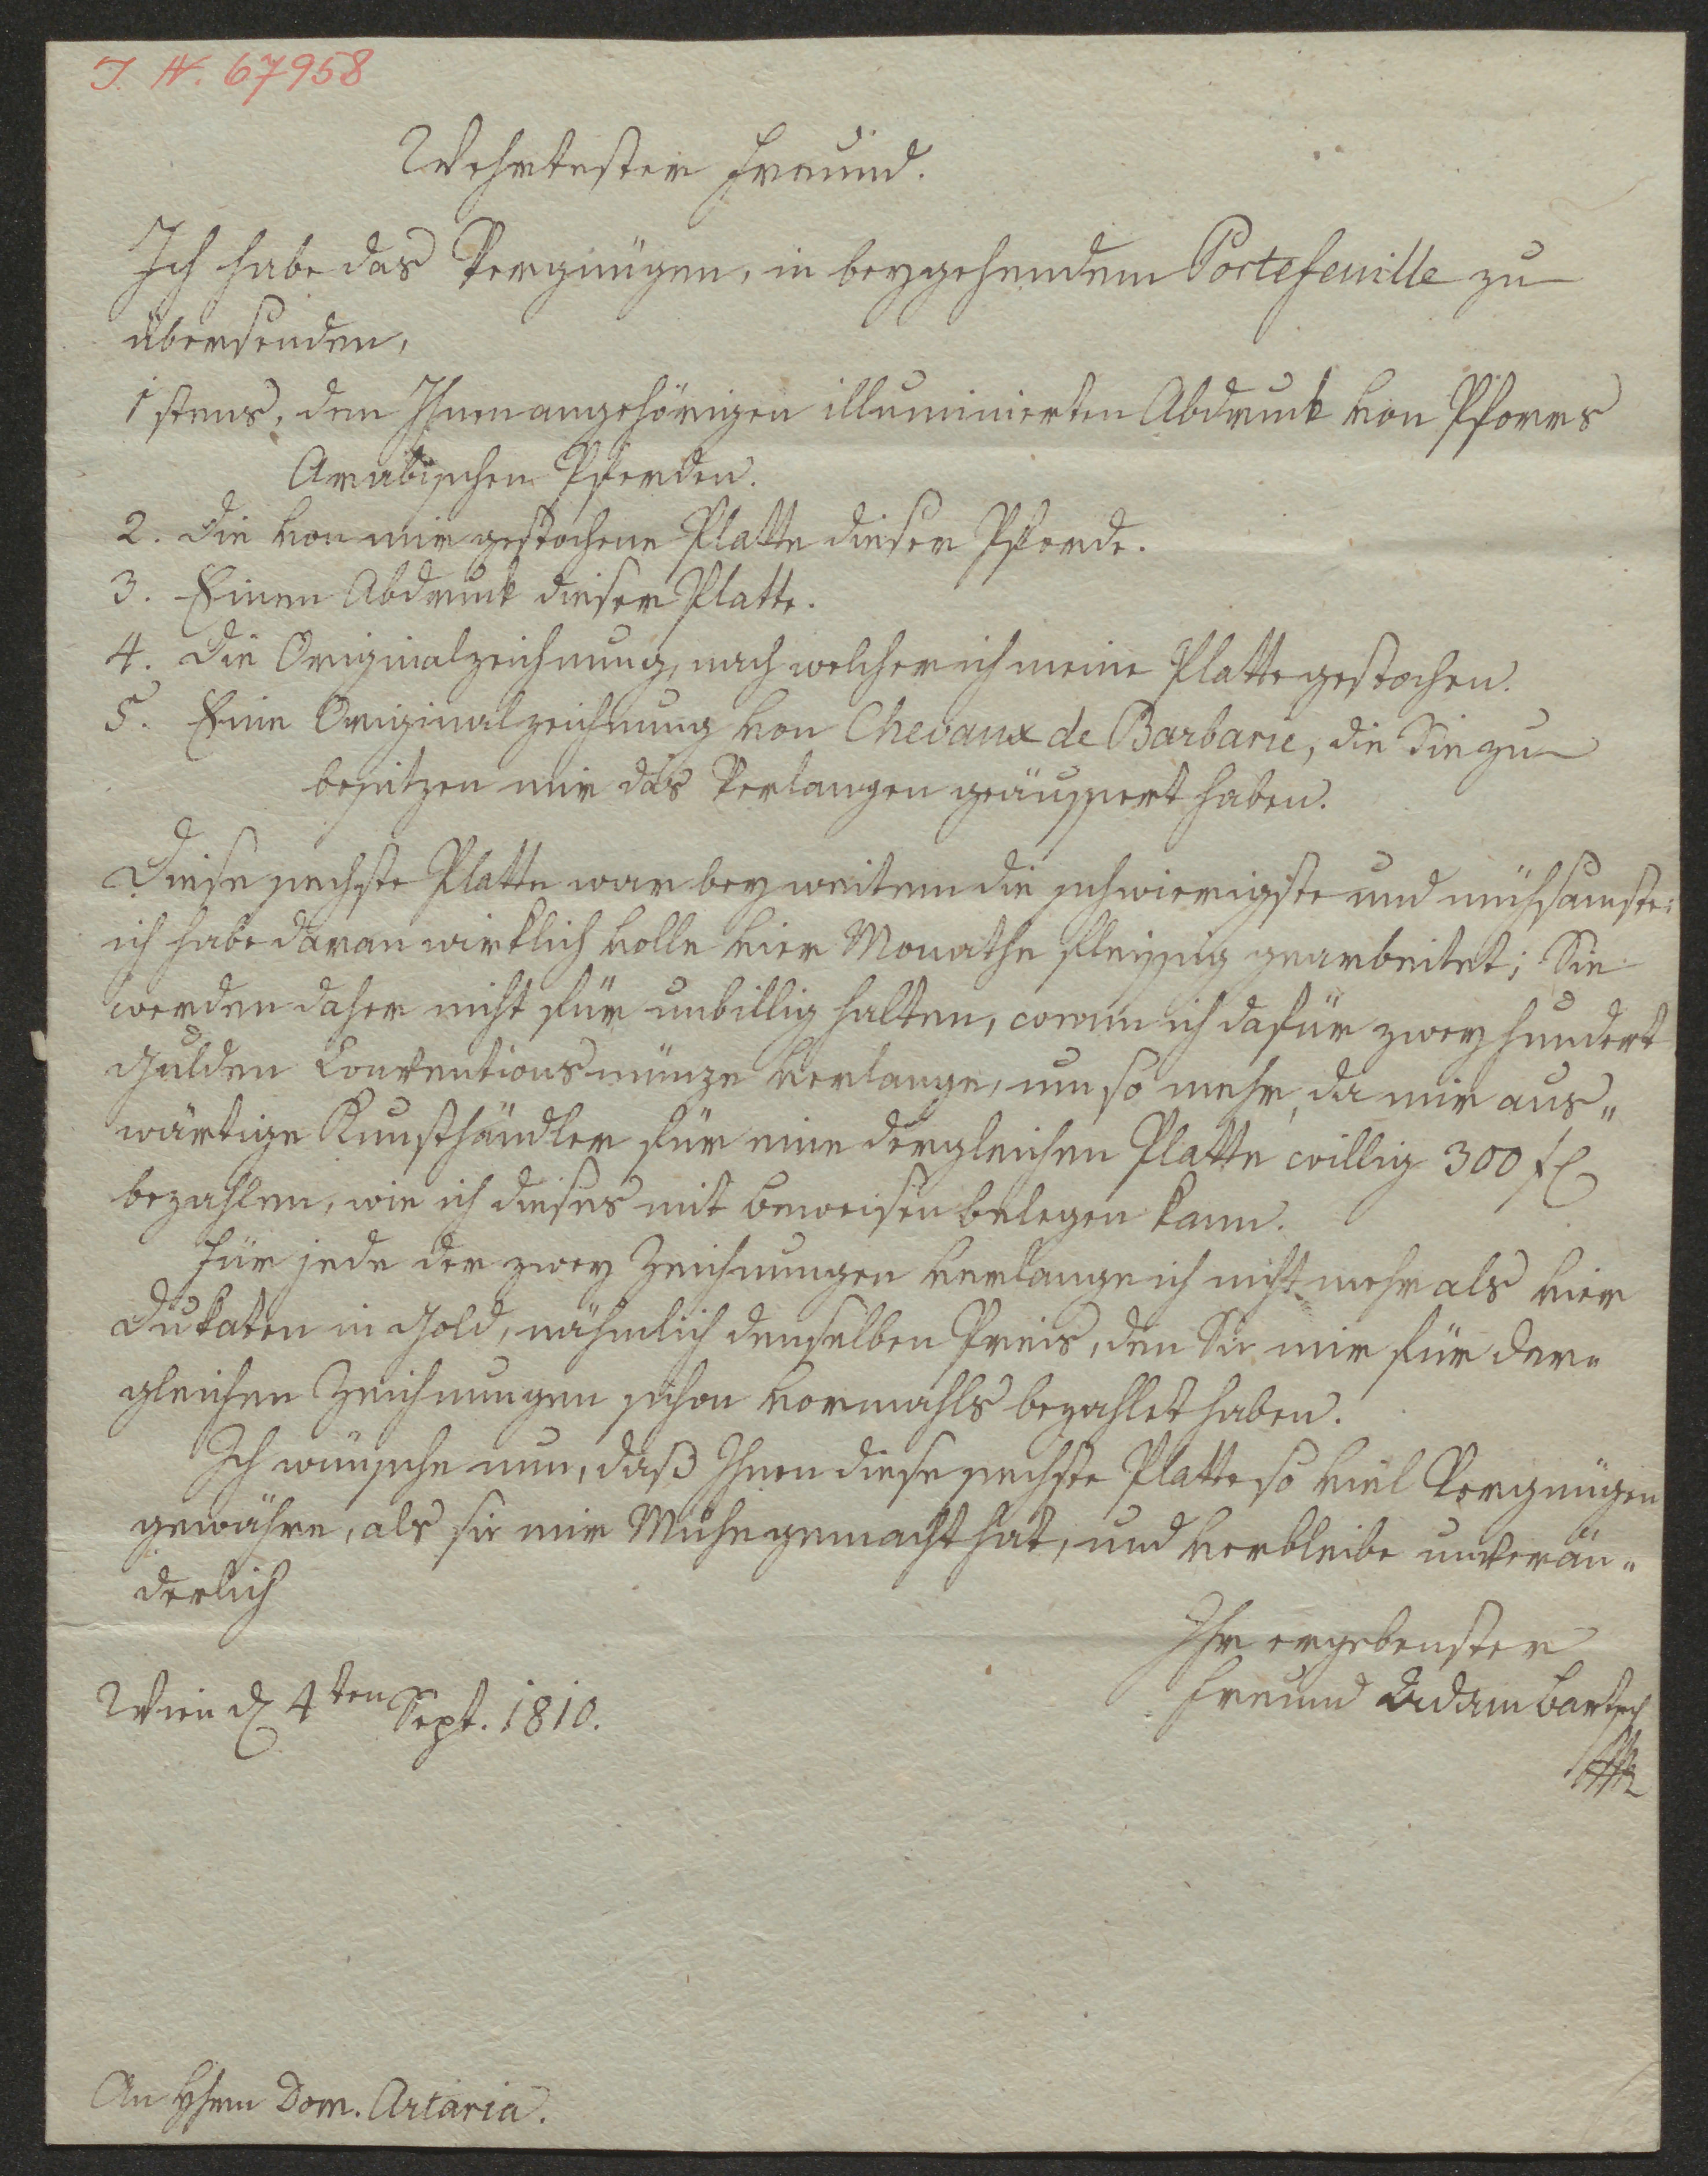 I. N. 67958
Wehrtester Freund.
Ich habe das Vergnügen, in beygehendem Portefeuille zu
übersenden,
1stens, den Ihnen angehörigen illuminierten Abdruck von Pforrs
Arabischen Pferden.
2. Die von mir gestochene Platte dieser Pferde.
3. Einen Abdruck dieser Platte.
4. Die Originalzeichnung, nach welcher ich meine Platte gestochen.
5. Eine Originalzeichnung von Chevaux de Barbarie, die Sie zu
besitzen mir das Verlangen geäussert haben.
Diese sechste Platte war bey weitem die schwierigste und mühsamste:
ich habe daran wirklich volle vier Monathe fleissig gearbeitet; Sie
werden daher nicht für unbillig halten, wenn ich dafür zwey hundert
Gulden Conventionsmünze verlange, um so mehr, da mir aus„
wärtige Kunsthändler für eine dergleichen Platte willig 300 fl
bezahlen, wie ich dieses mit Beweisen belegen kann.
Für jede der zwey Zeichnungen verlange ich nicht mehr als vier
Dukaten in Gold, nähmlich denselben Preis, den Sie mir für der„
gleichen Zeichnungen schon vormahls bezahlet haben.
Ich wünsche nun, daß Ihnen diese sechste Platte so viel Vergnügen
gewähre, als sie mir Mühe gemacht hat, und verbleibe unverän„
derlich
Ihr ergebenster
Wien d 4ten Sept. 1810.
Freund Adam Bartsch
An Hhrrn Dom. Artaria.